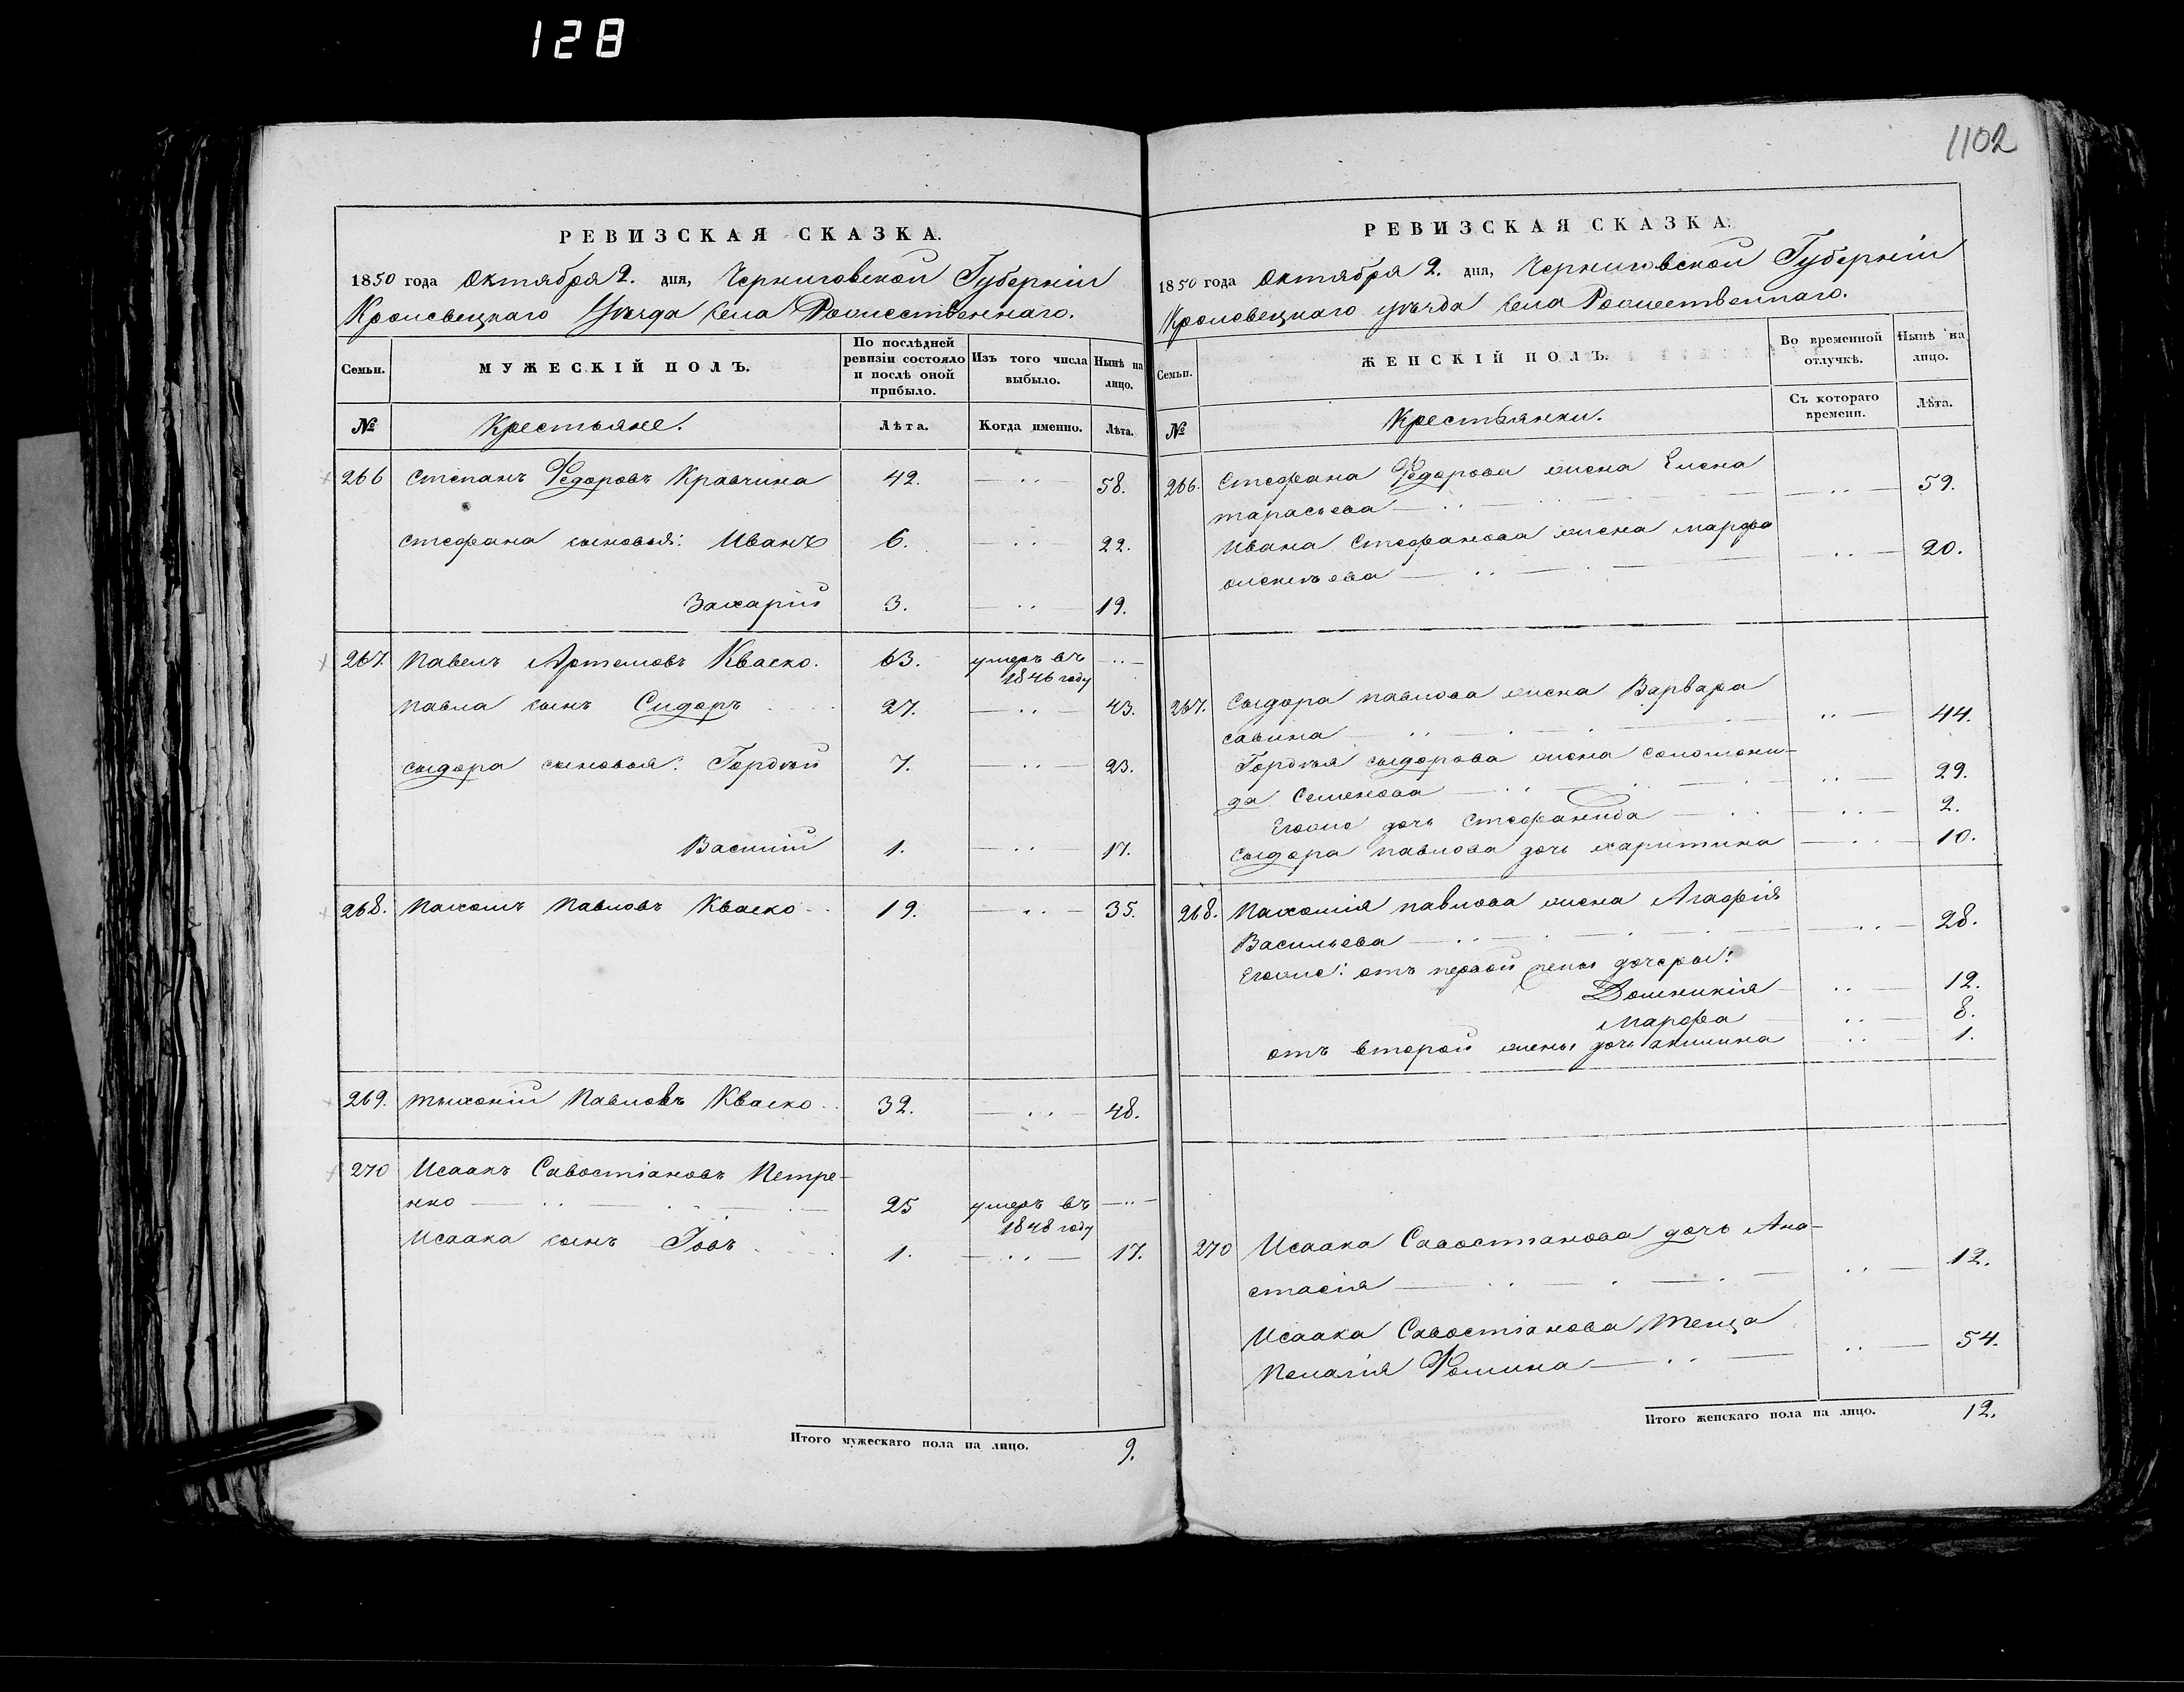 128
1102
РЕВИЗСКАЯ СКАЗКА.
1850 года Октября 2. дня, Черниговской Губерніи
Кролевецкаго Уѣзда села Рождественнаго.
Семьи. МУЖЕСКІЙ ПОЛЪ. По послѣдней ревизіи состояло и послѣ оной прибыло. Изъ того числа выбыло. Нынѣ на лицо.
№ Крестьяне. Лѣта. Когда именно. Лѣта.
266 Степанъ Федоровъ Кравчина 42. — .. 58.
Стефана сыновья: Иванъ 6. — .. 22.
Захарій 3. — .. 19.
267. Павелъ Артемовъ Кваско. 63. умеръ въ 1846 году — .. —
Павла сынъ Сидоръ 27. — .. — 43.
Сыдора сыновья: Гордѣй 7. — .. — 23.
Василій 1. — .. 17.
268. Пахомъ Павловъ Кваско 19. — .. — 35.
269. Тыхоній Павловъ Кваско 32. — .. — 48.
270 Исаакъ Савостіановъ Петре-
нко — .. — 25 умеръ въ 1848 году — .. —
Исаака сынъ Іовъ 1. — .. — 17.
Итого мужескаго пола на лицо. 9.
РЕВИЗСКАЯ СКАЗКА.
1850 года Октября 2. дня, Черниговской Губерніи
Кролевецкаго уѣзда села Рождественнаго.
Семьи. ЖЕНСКІЙ ПОЛЪ. Во временной отлучкѣ. Нынѣ на лицо.
№ Крестьянки. Съ котораго времени. Лѣта.
266. Стефана Федорова жена Елена
Тарасьева — .. — 59.
Ивана Стефанова жена Марфа
.. — 20.
267. Сыдора Павлова жена Варвара
Савина .. — 44.
Гордѣя Сыдорова жена Соломони-
да Семенова — .. — 29.
Егоже дочь Стефанида — .. — 2.
Сыдора Павлова дочь Харитина — .. — 10.
268. Пахомія Павлова жена Агафія
Васильева — .. — 28.
Егоже: отъ первой жены дочеры:
Домникія .. — 12.
Марфа .. — 8.
отъ второй жены дочь Акилина .. — 1.
270 Исаака Савостианова дочь Ана-
стасія — .. — 12.
Исаака Савостіанова Теща
Пелагія Фомина — .. — 54.
Итого женскаго пола на лицо. 12.